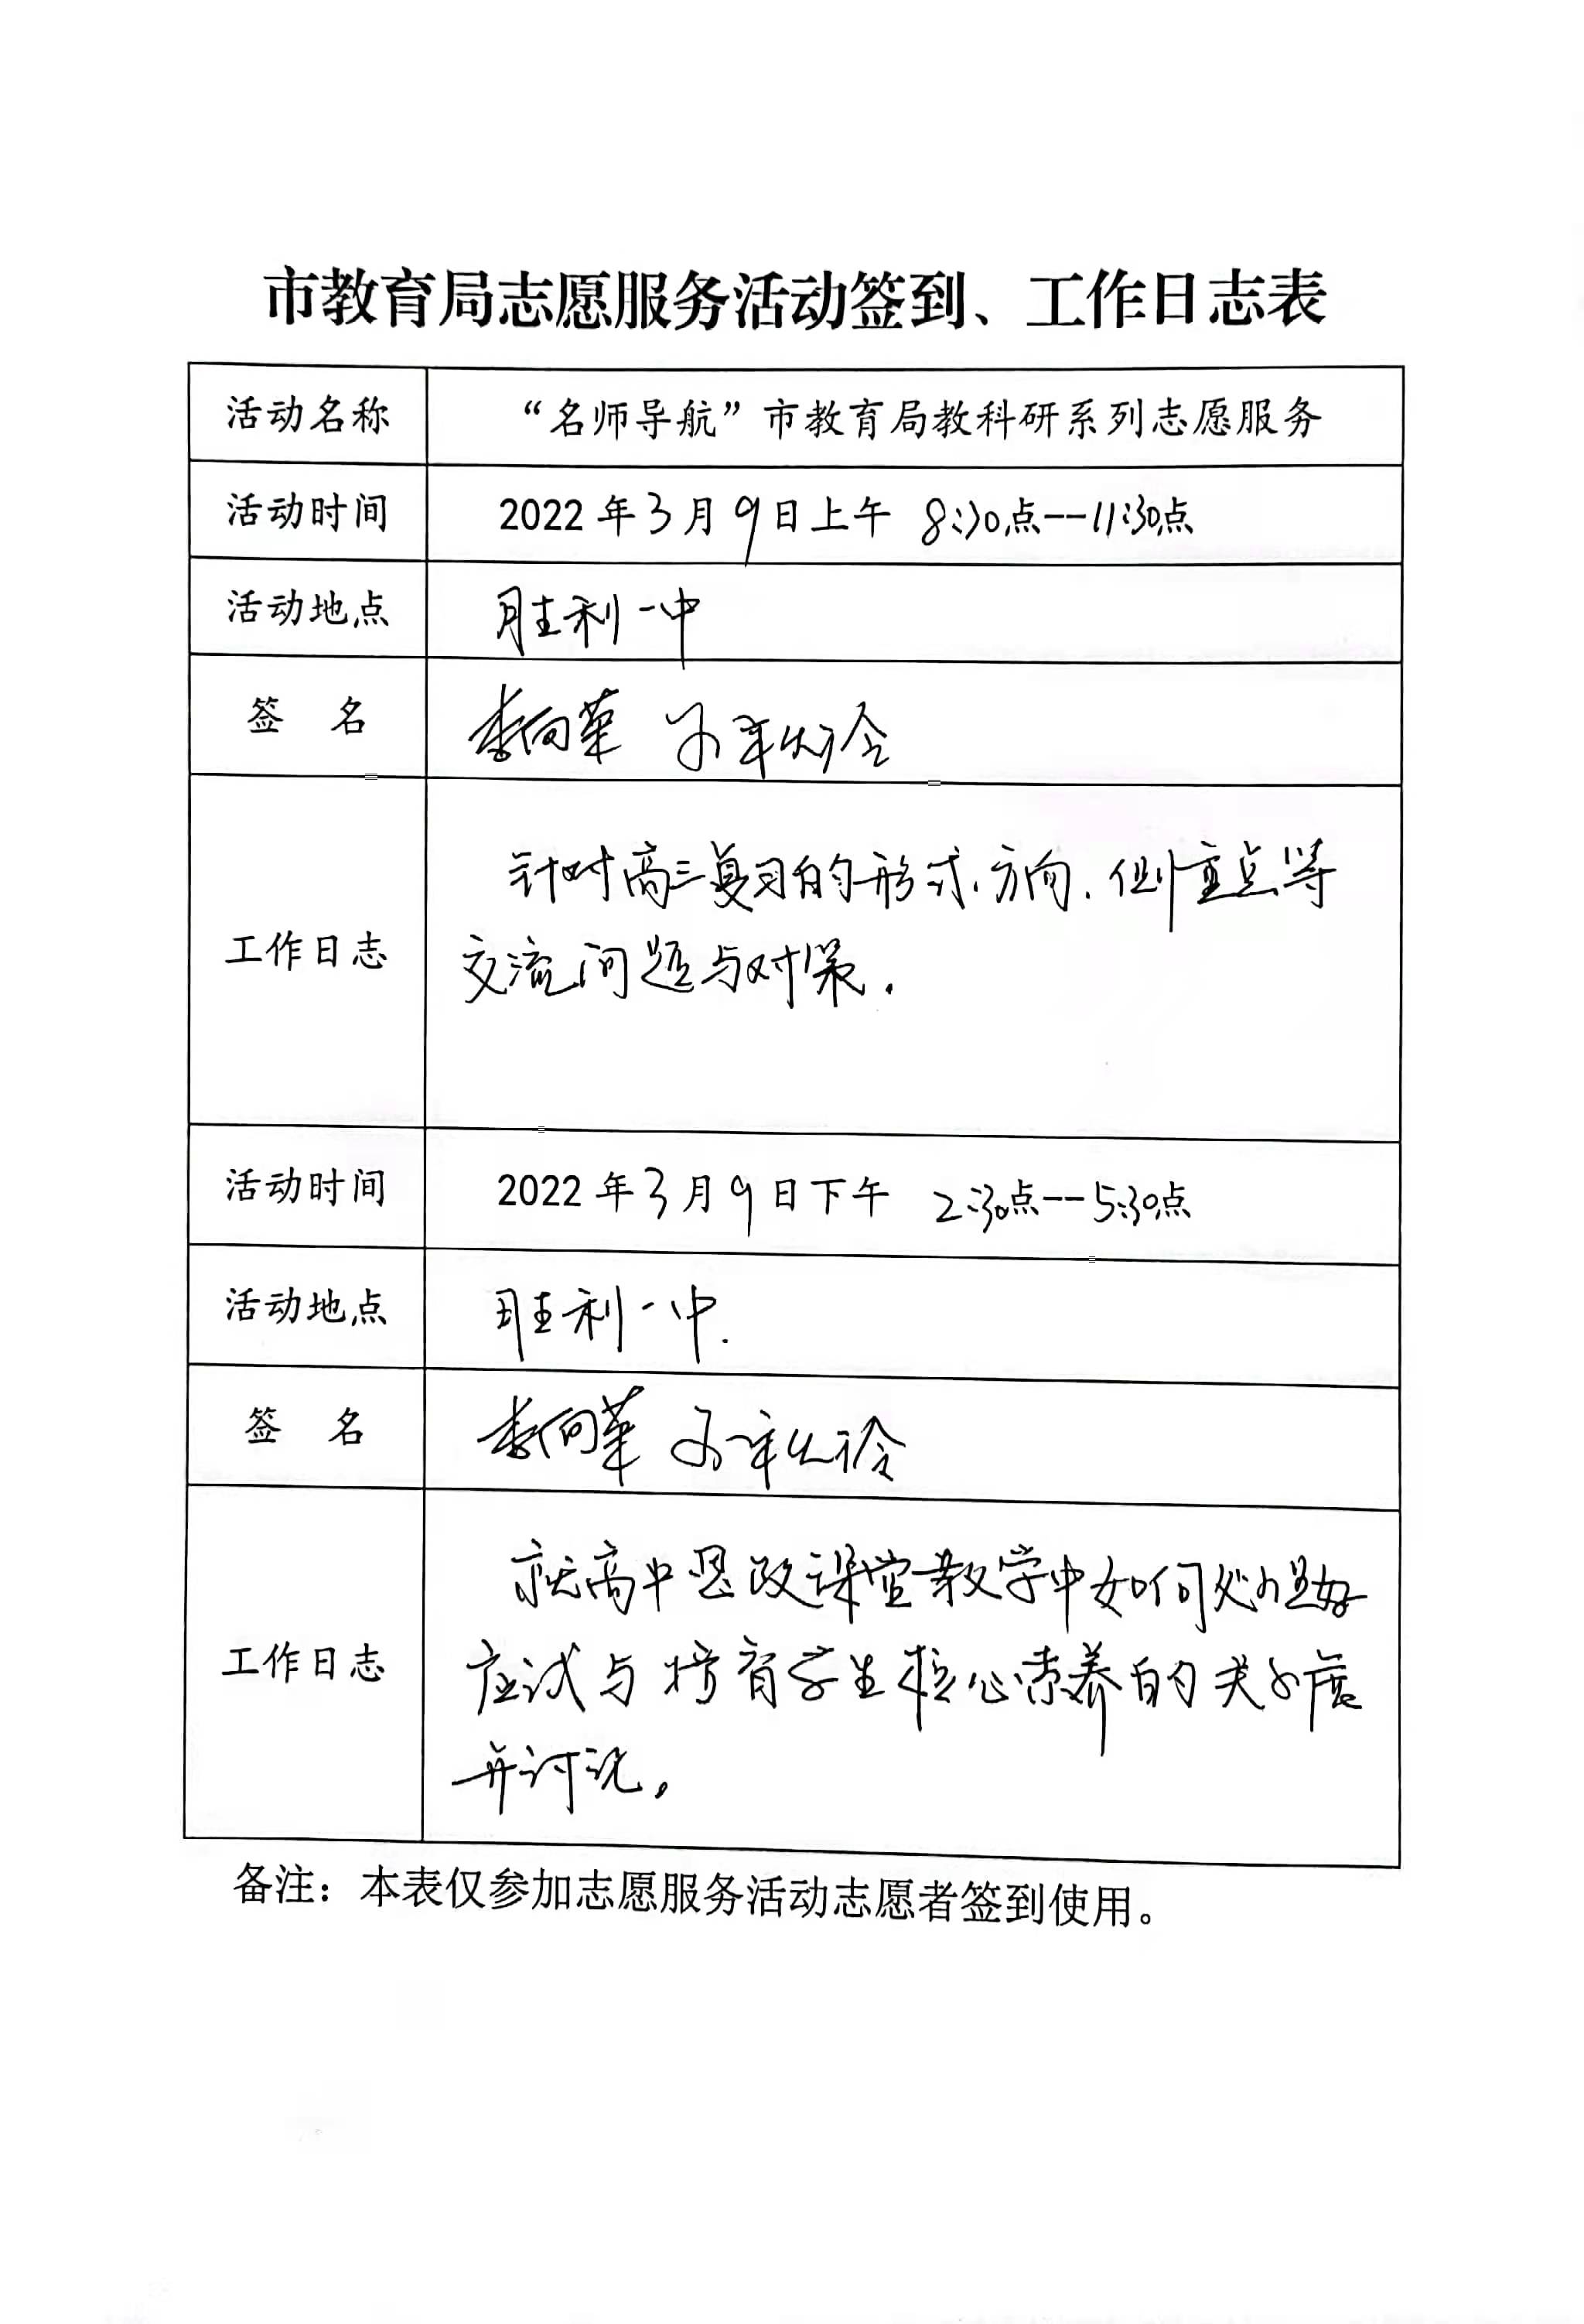 市教育局志愿服务活动签到、工作日志表
活动名称 “名师导航”市教育局教科研系列志愿服务
活动时间 2022年3月9日上午 8:30点--11:30点
活动地点 胜利一中
签 名 李向华
工作日志
针对高三复习的形式、方向、侧重点等
交流问题与对策.
活动时间 2022年3月9日下午 2:30点--5:30点
活动地点 胜利一中.
签 名 李向华
工作日志
就高中思政课堂教学中如何处理好
应试与培育学生核心素养的关系
并讨论。
备注：本表仅参加志愿服务活动志愿者签到使用。